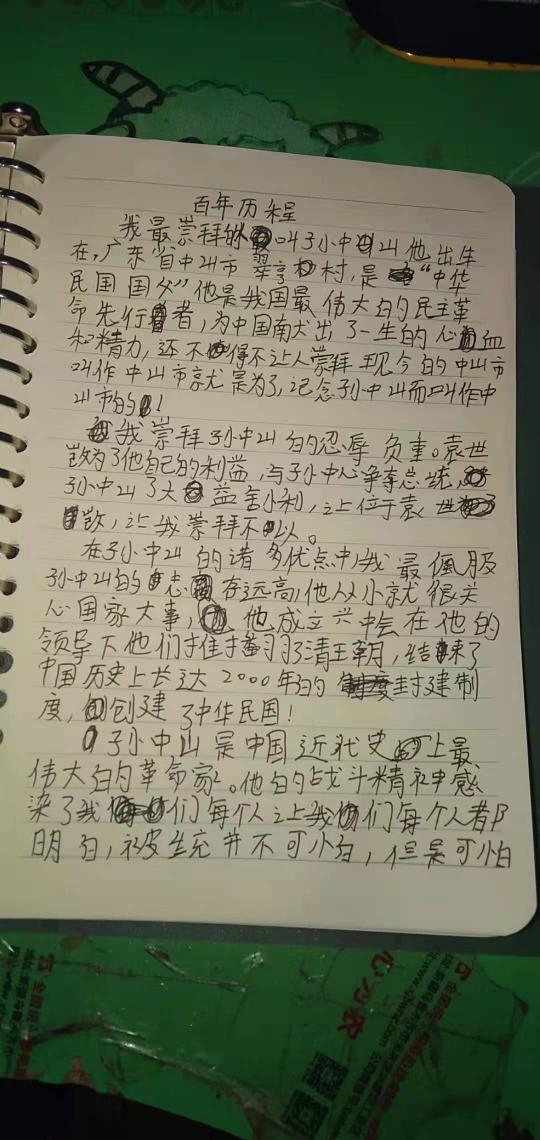 百年历程
我最崇拜的人叫孙中山他出生
在,广东省中山市翠亨村,是“中华
民国国父”他是我国最伟大的民主革
命先行者,为中国献出了一生的心血
和精力,还不得不让人崇拜现今的中山市
叫作中山市就是为了记念孙中山而叫作中
山市的!
我崇拜孙中山的忍辱负重。袁世
凯为了他自己的利益,与孙中山争夺总统,
孙中山了大益舍小利,让位于袁世
凯,让我崇拜不以。
在孙中山的诸多优点中,我最佩服
孙中山的志存远高,他从小就很关
心国家大事,他成立兴中会在他的
领导下他们推翻了清王朝,结束了
中国历史上长达2000年的封建制
度,创建了中华民国!
孙中山是中国近代史上最
伟大的革命家。他的战斗精神感
染了我们每个人让我们每个人都
明白,被统并不可怕,但是可怕